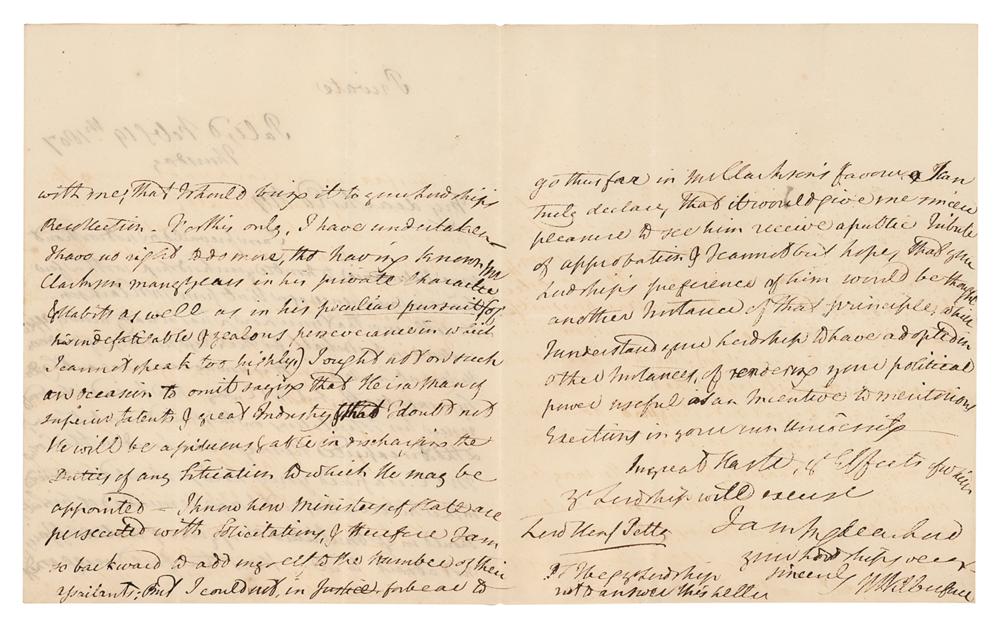 with me, that I should bring it to your Lordship's
Recollection. For this only, I have undertaken
I have no right to do more, tho having known Mr
Clarkson many years in his private Character
& Habits as well as in his peculiar pursuit (for
his indefatigable & zealous perseverance in which
I cannot speak too highly) I ought not on such
an occasion to omit saying that He is a Man of
superior talents & great Industry & that I doubt not
He will be assiduous & able in discharging the
Duties of any Situation to which He may be
appointed - I know how Ministers of State are
persecuted with Solicitations, & therefore I am
so backward to add myself to the Number of their
assailants; But I could not, in Justice, forbear to
go thus far in Mr Clarkson's favour & I can
truly declare, that it would give me sincere
pleasure to see him receive a public Tribute
of approbation & I cannot but hope, that your
Lordship's preference of him would be thought
another Instance of that principle, which
I understand your Lordship to have adopted in
other Instances, of rendering your political
power useful as an Incentive to meritorious
Exertions in your own University
In great Haste, ye Effects of which
yr Lordship will excuse
I am My dear Lord
your Lordship's very
sincerely
W Wilberforce
Lord Henry Petty
PS I beg yr Lordship
not to answer this Letter
Private
Pal: Yd Feby 19th 1807
Thursday